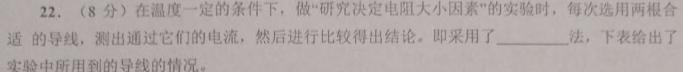 22. （8 分）在温度一定的条件下，做“研究决定电阻大小因素”的实验时，每次选用两根合
适 的导线，测出通过它们的电流，然后进行比较得出结论。即采用了________法，下表给出了
实验中所用到的导线的情况。